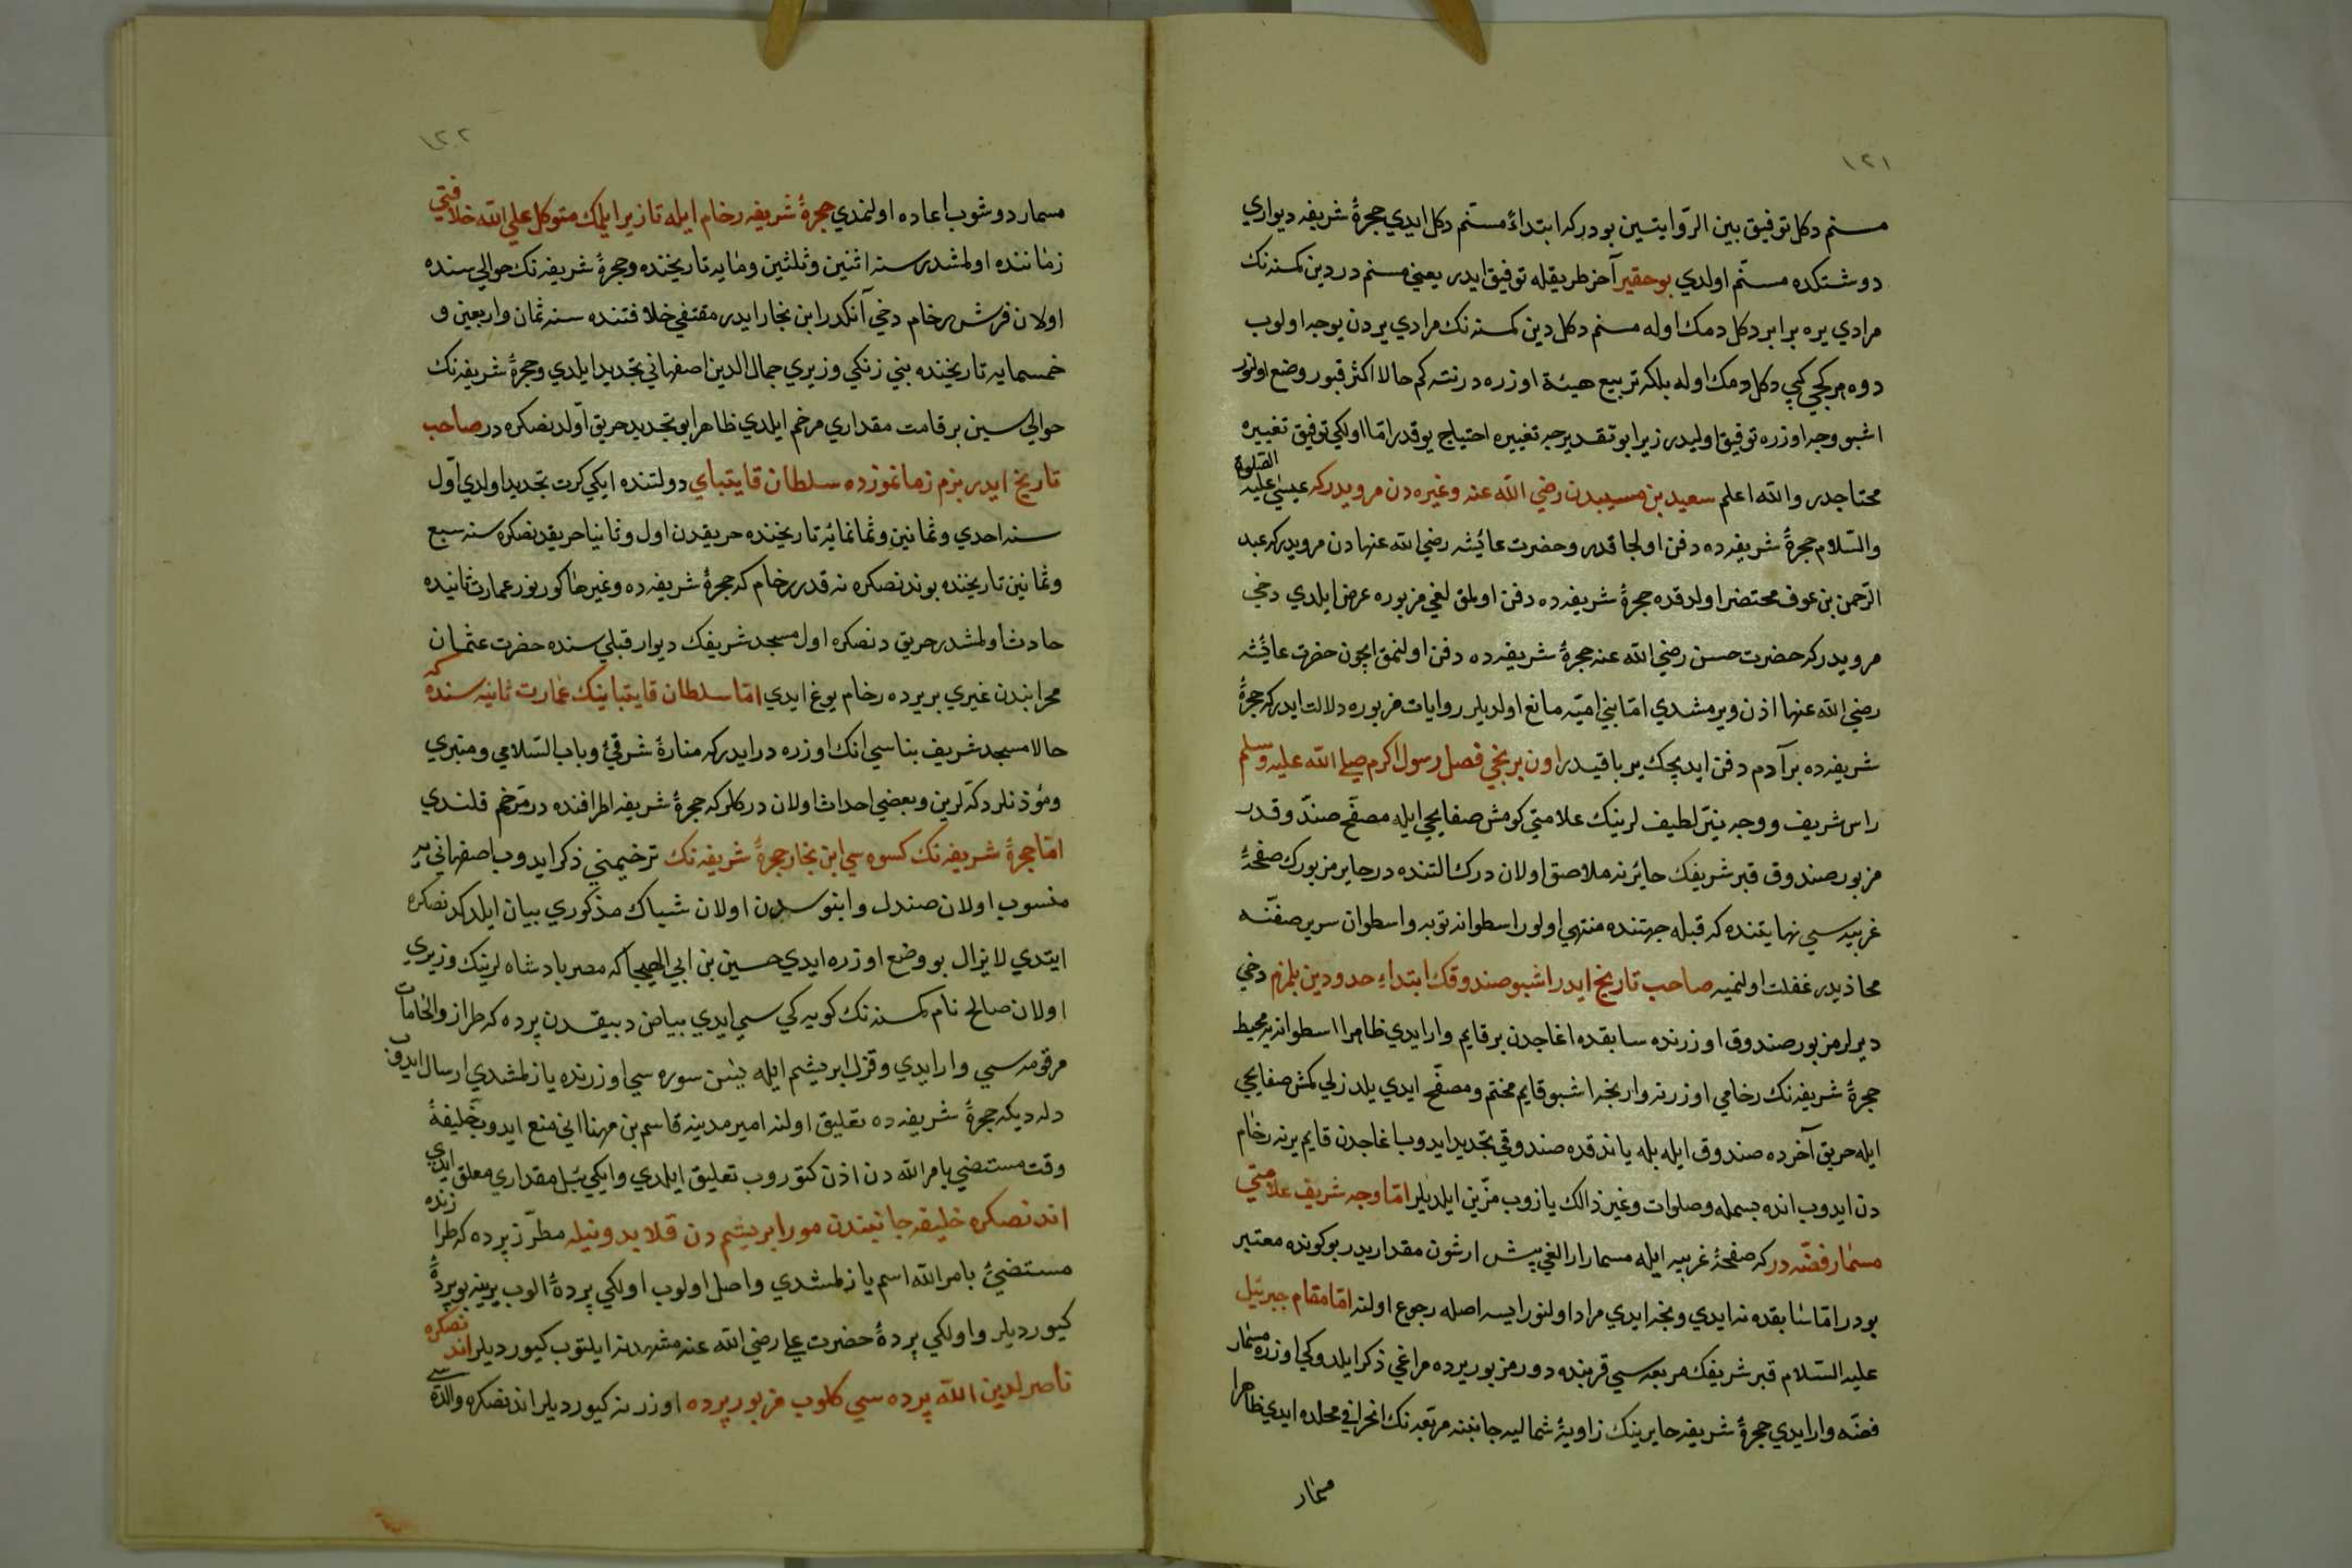 ١٢١
مسنم دكل توفيق بين الرّوايتين بودركه ابتداءً مسنّم دكل ايدي حجرهٔ شريفه ديواري
دوشتكده مسنّم اولدي بوحقير آخر طريقله توفيق ايدر يعني مسنم در دين كمسنه نك
مرادي يره برابر دكل دمك اوله مسنم دكل دين كمسنه نك مرادي يردن يوجه اولوب
دوه هركجي كبي دكل دمك اوله بلكه تربيع هيئة اوزره در نته كم حالا اكثر قبور وضع اولنور
اشبو وجه اوزره توفيق اوليدر زيرا بو تقديرجه تغييره احتياج يوقدر امّا اولكي توفيق تغييره
محتاجدر والله اعلم سعيد بن مسيبدن رضي الله عنه وغيره دن مرويدركه عيسي عليه الصّلوة
والسّلام حجرهٔ شريفه ده دفن اولجاقدر وحضرت عائيشه رضي الله عنها دن مرويدركه عبد
الرّحمن بن عوف محتضر اولدقده حجرهٔ شريفه ده دفن اولمق لغي مزبوره عرض ايلدي دخي
مرويدركه حضرت حسن رضي الله عنه حجرهٔ شريفه ده دفن اولنمق ايچون حضرت عائيشه
رضي الله عنها اذن ويرمشدي امّا بني اميّه مانع اولديلر روايات مزبوره دلالت ايدركه حجرهٔ
شريفه ده بر آدم دفن ايدجك ير باقيدر اون برنجي فصل رسول اكرم صلي الله عليه وسلم
راس شريف ووجه نيّر لطيف لرينك علامتي كومش صفايحي ايله مصفّح صندوقدر
مزبور صندوق قبر شريفك حائزنه ملاصق اولان درك التنده در حايز مزبورك صفحهٔ
غربيه سي نهايتنده كه قبله جهتنده منتهي اولور اسطوانه توبه واسطوان سرير صفّنه
محاذيدر غفلت اولنميه صاحب تاريخ ايدر اشبو صندوقك ابتداءِ حدودين بلمزم دخي
ديرلر مزبور صندوق اوزرنده سابقده اغاجدن بر قايم وار ايدي ظاهرا اسطوانه يه محيط
حجرهٔ شريفه نك رخامي اوزرنه وارنجه اشبو قايم مختم ومصفّح ايدي يلدزلي كمش صفايحي
ايله حريق آخرده صندوق ايله بله ياندقده صندوقي تجديد ايدوب اغاجدن قايم يرنه رخام
دن ايدوب انده بسمله وصلوات وغير ذالك يازوب مزّين ايلديلر امّا وجه شريف علامتي
مسمار فضّه دركه صفحهٔ غربيه ايله مسمار ارالغي بيش ارشون مقداريدر بوكونده معتبر
بودر امّا سابقده نه ايدي ونجه ايدي مراد اولنورايسه اصله رجوع اولنه امّا مقام جبرئيل
عليه السّلام قبر شريفك مربعه سي قربنده دور مزبور يرده مراغي ذكر ايلدوكي اوزره مسمار
فضّه وار ايدي حجرهٔ شريفه حايرينك زاويهٔ شماليه جانبنه مربّعه نك انحرافي محلده ايدي ظاهرا
مسمار
١٢٢
مسمار دوشوب اعاده اولنمدي حجرهٔ شريفه رخام ايله تازير ايلمك متوكل علي الله خلافتي
زماننده اولمشدر سنه اثنين وثلثين ومايه تاريخنده وحجرهٔ شريفه نك حوالي سنده
اولان فرش رخام دخي آنكدر ابن نجار ايدر مقتفي خلافتنده سنه ثمان واربعين و
خمسمايه تاريخنده بني زنكي وزيري جمال الدين اصفهاني تجديد ايلدي وحجرهٔ شريفه نك
حوالي سين بر قامت مقداري مرخم ايلدي ظاهر ابو تجديد حريق اوّلدنصكره در صاحب
تاريخ ايدر بزم زمانموزده سلطان قايتباي دولتنده ايكي كرت تجديد اولدي اوّل
سنه احدي وثمانين وثمانمائه تاريخنده حريقدن اول وثانيا حريقدنصكره سنه سبع
وثمانين تاريخنده بوندنصكره نه قدر رخام كه حجرهٔ شريفه ده وغيرها كورنور عمارت ثانيده
حادث اولمشدر حريق دنصكره اول مسجد شريفك ديوار قبلي سنده حضرت عثمان
محرابندن غيري بر يرده رخام يوغ ايدي امّا سلطان قايتباينك عمارت ثانيه سنده كه
حالا مسجد شريف بناسي انك اوزره در ايدركه منارهٔ شرقيّ وباب السّلامي ومنبري
ومؤذنلر دكّه لرين وبعضي احداث اولان دركلر كه حجرهٔ شريفه اطرافنده در مرّخم قلندي
امّا حجرهٔ شريفه نك كسوه سي ابن نجار حجرهٔ شريفه نك ترخيمني ذكر ايدوب اصفهاني يه
منسوب اولان صندل وابنوسدن اولان شباك مذكوري بيان ايلدكدنصكره
ايتدي لايزال بو وضع اوزره ايدي حسين بن ابي الهيجا كه مصر بادشاه لرينك وزيري
اولان صالح نام كمسنه نك كويه كي سي ايدي بياض دبيقدن پرده كه طراز والخامات
مرقومه سي وار ايدي وقزل ابريشم ايله يس سوره سي اوزرنده يازلمشدي ارسال ايدوب
دله ديكه حجرهٔ شريفه ده تعليق اولنه امير مدينه قاسم بن مهنا اني منع ايدوب خليفهٔ
وقت مستضي بامر الله دن اذن كتوروب تعليق ايلدي وايكي ييل مقداري معلق ايدي
اندنصكره خليفه جانبندن مور ابريشم دن قلايدونيله مطرّز پرده كه طرازنده
مستضيُ بامر الله اسم يازلمشدي واصل اولوب اولكي پردهٔ الوب يرينه بو پردهٔ
كيورديلر واولكي پردهٔ حضرت علي رضي الله عنه مشهدنه ايلتوب كيورديلر اندنصكره
ناصر لدين الله پرده سي كلوب مزبور پرده اوزرنه كيورديلر اندنصكره والده سي